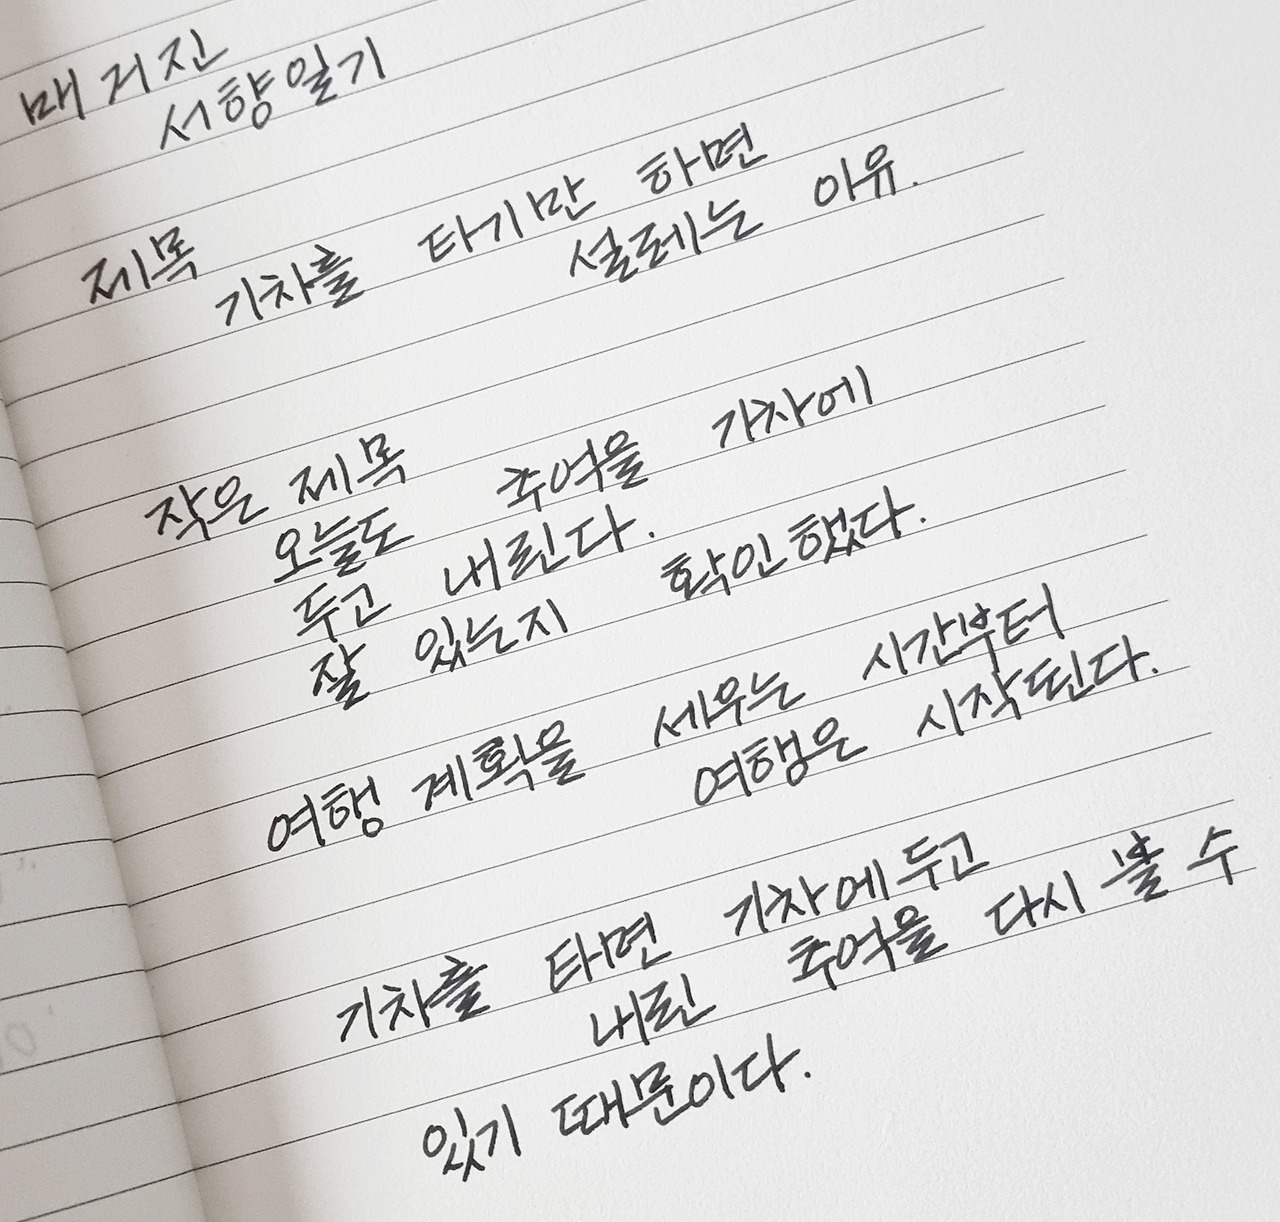 매거진
서향일기
제목
기차를 타기만 하면
설레는 이유.
작은 제목
오늘도 추억을 기차에
두고 내린다.
잘 있는지 확인했다.
여행 계획을 세우는 시간부터
여행은 시작된다.
기차를 타면 기차에 두고
내린 추억을 다시 볼 수
있기 때문이다.